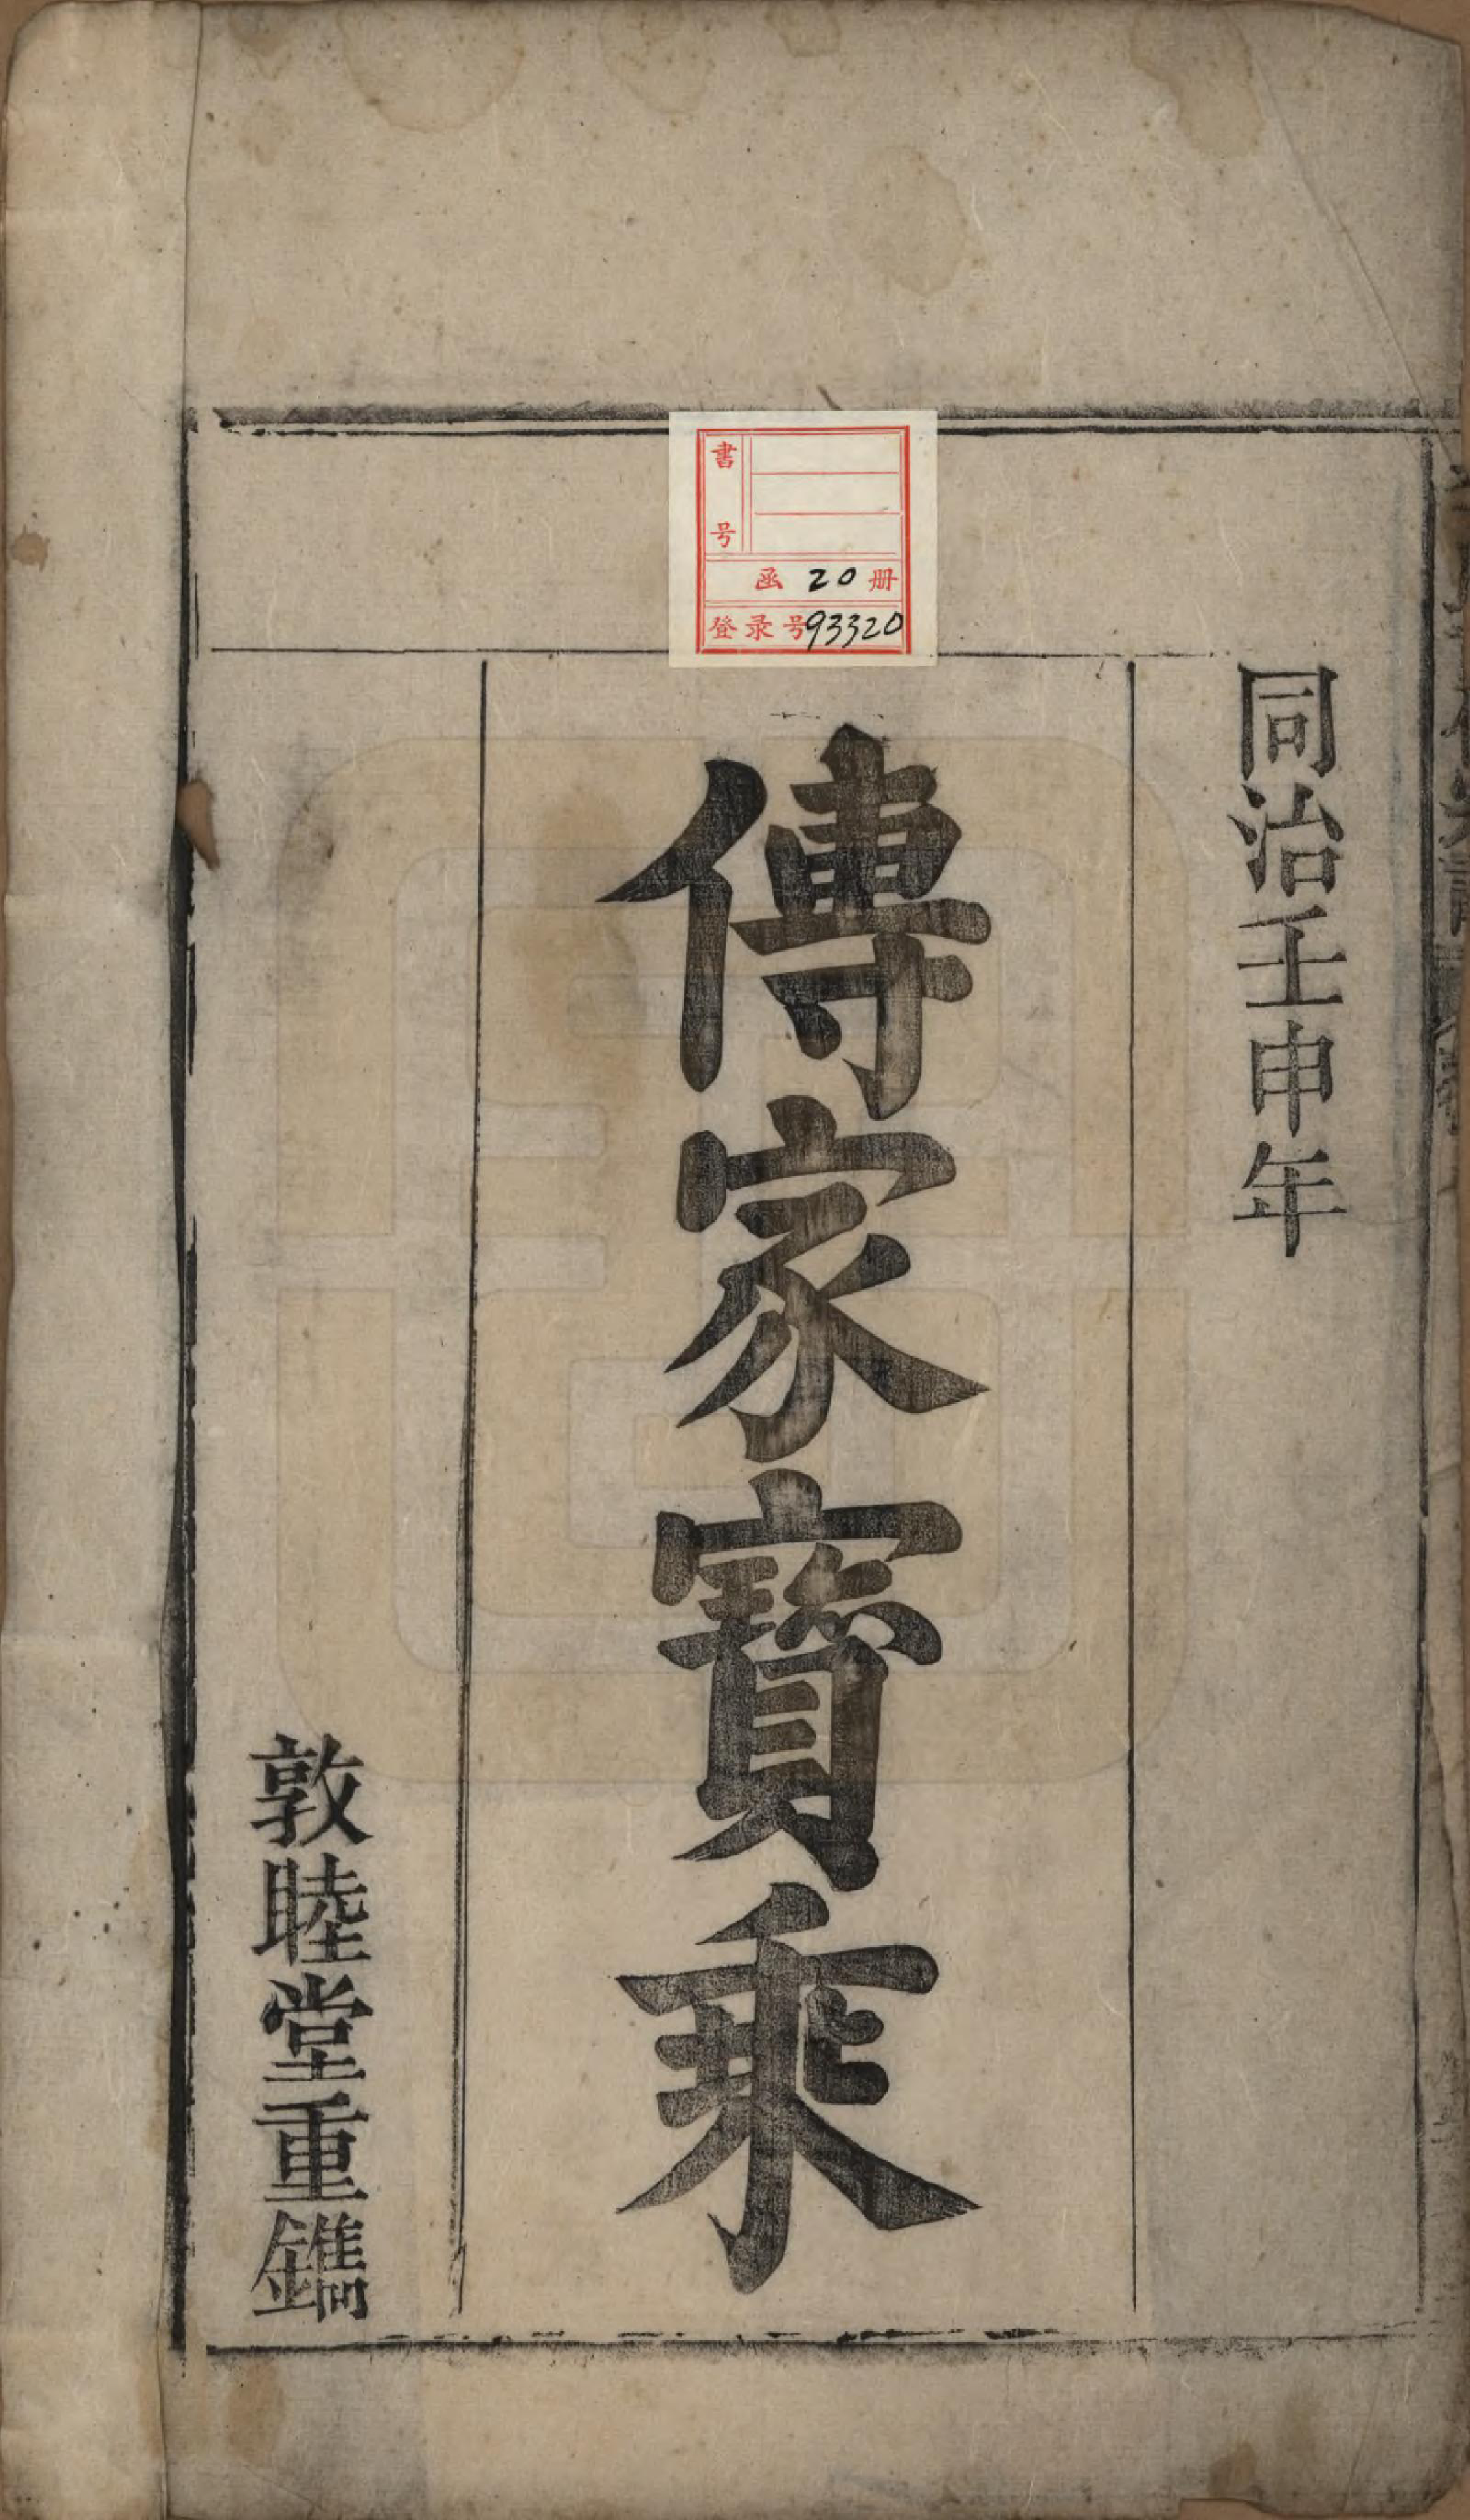 同治壬申年
傳家寶乘
敦睦堂重鐫
書号
函 20 册
登录号93320